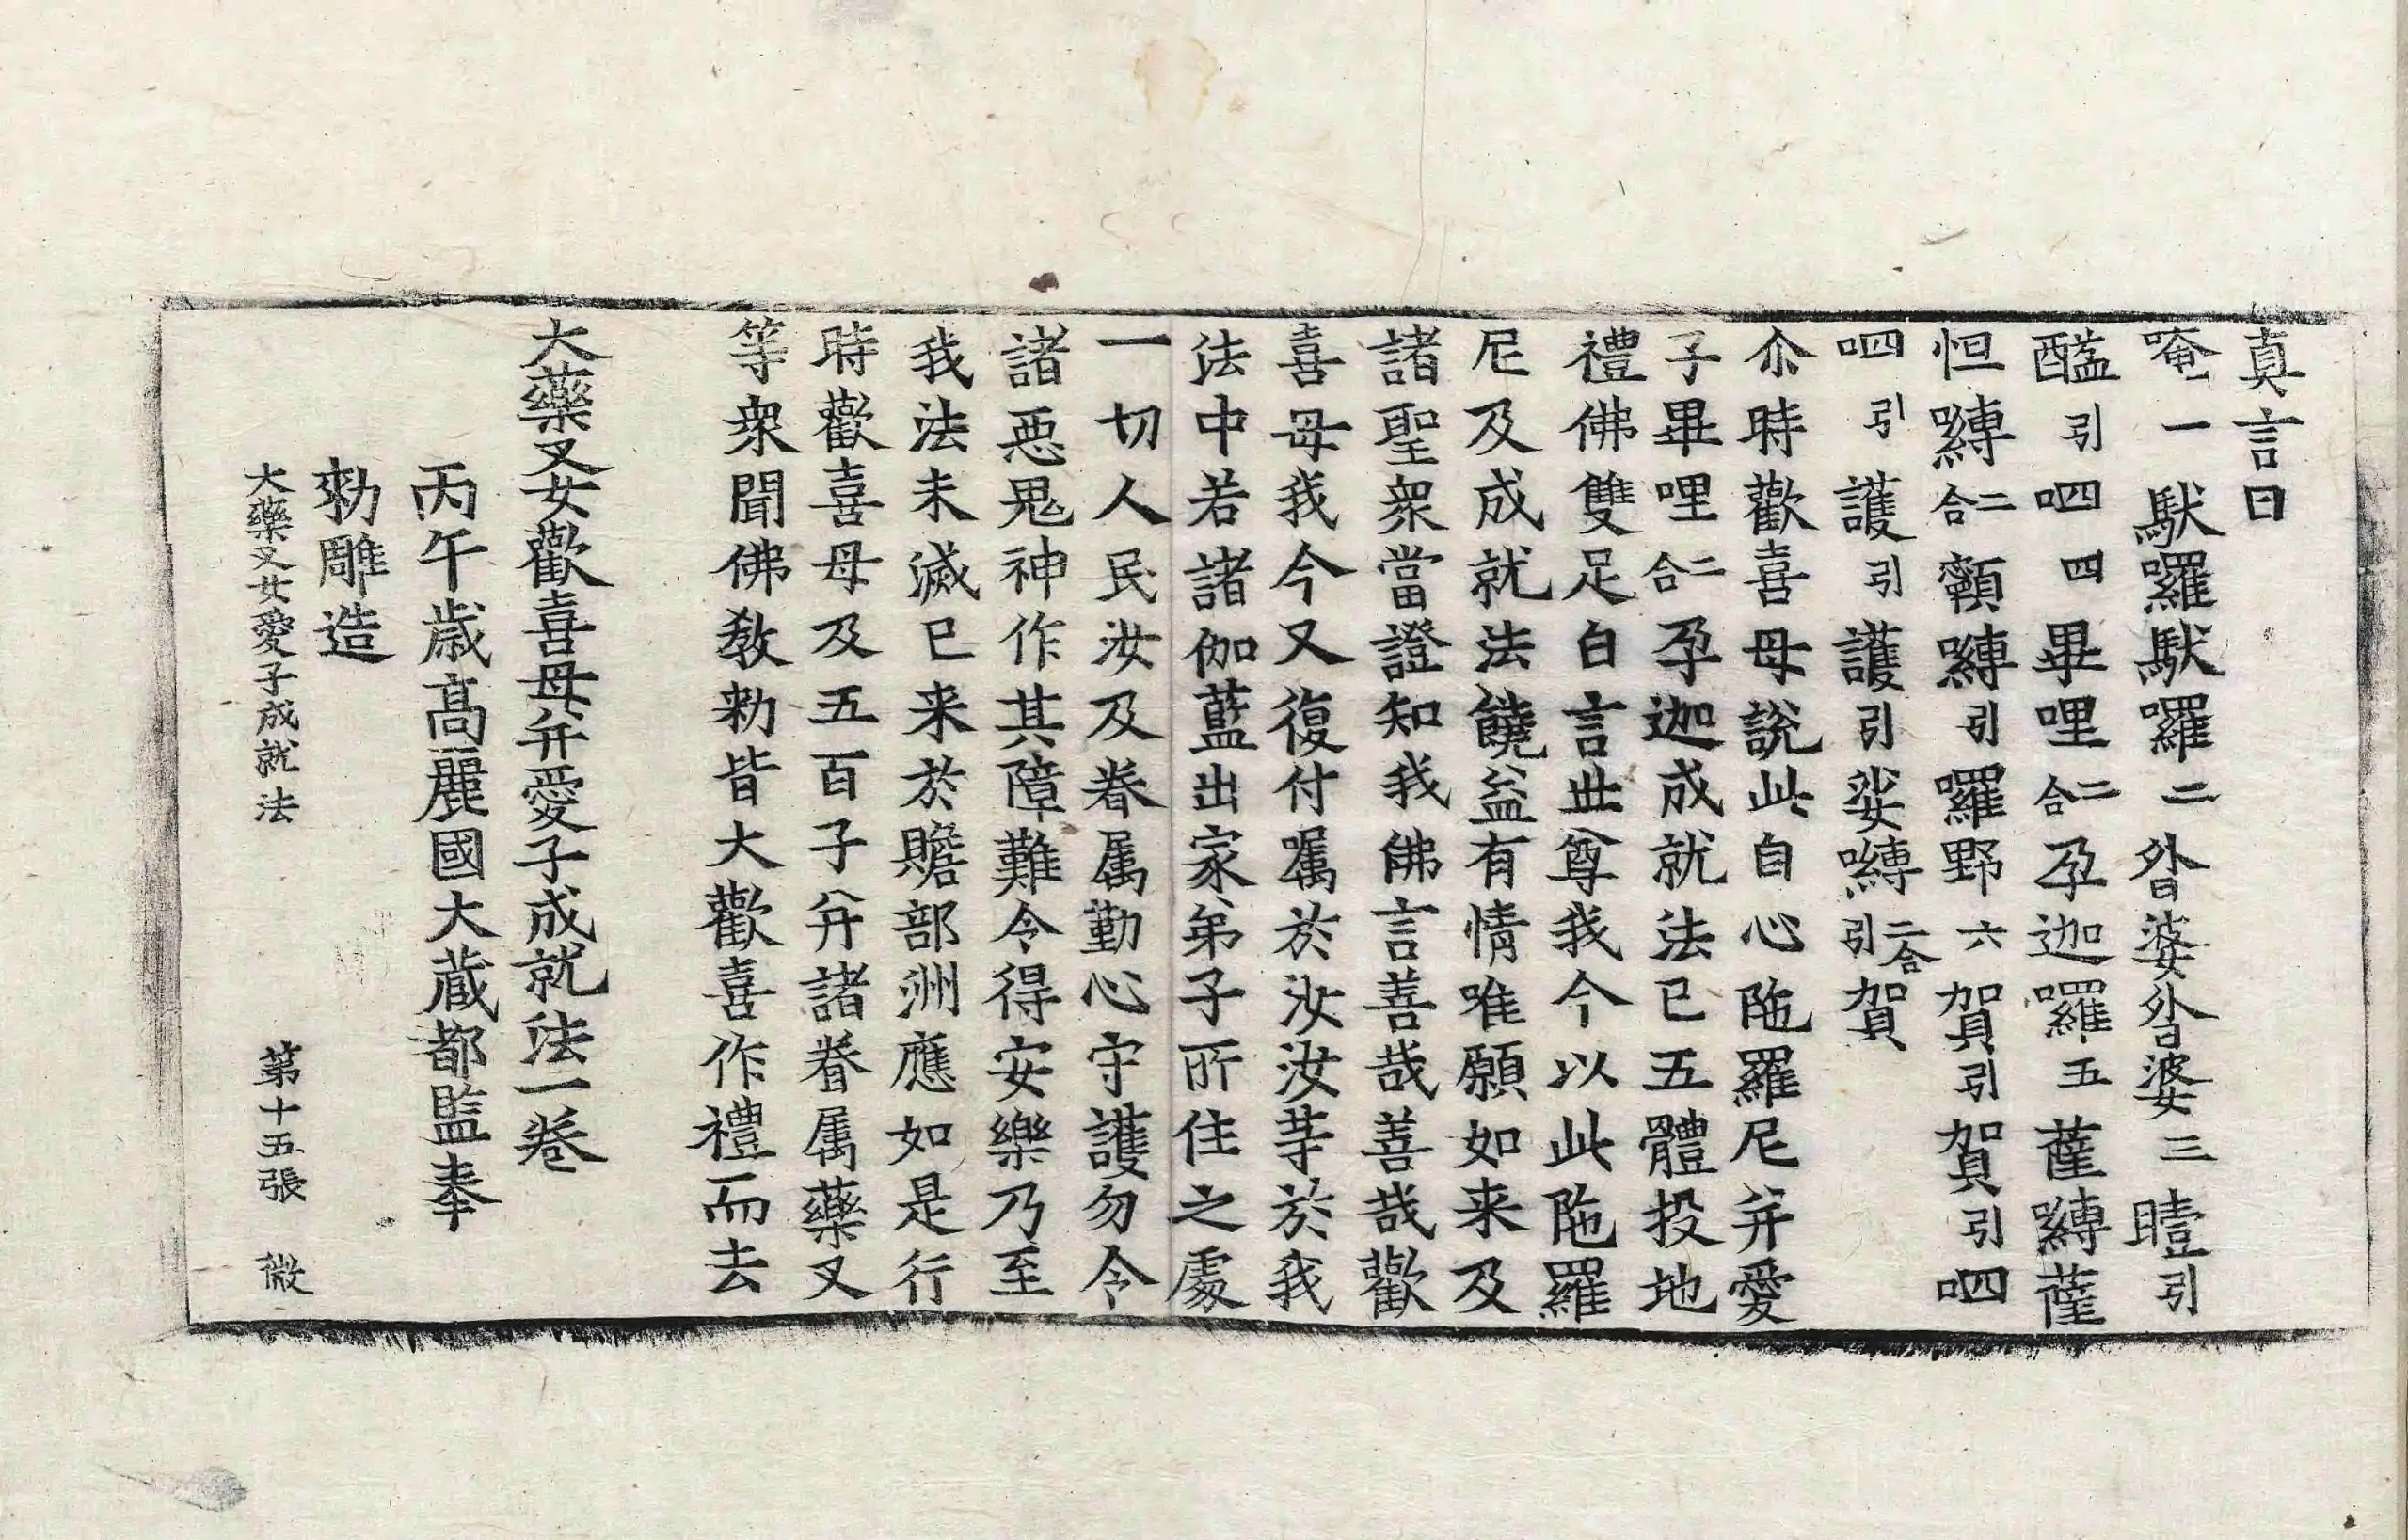 真言曰
唵一馱囉馱囉二沯婆沯婆三曀引
醯引呬四畢哩二合孕迦囉五薩嚩薩
怛嚩二合顙嚩引囉野六賀引賀引呬
呬引護引護引娑嚩二合引賀
尒時歡喜母說此自心陁羅尼幷愛
子畢哩二合孕迦成就法已五體投地
禮佛雙足白言世尊我今以此陁羅
尼及成就法饒益有情唯願如来及
諸聖衆當證知我佛言善哉善哉歡
喜母我今又復付囑於汝汝等於我
法中若諸伽藍出家弟子所住之處
一切人民汝及眷属勤心守護勿令
諸惡鬼神作其障難令得安樂乃至
我法未滅已来於贍部洲應如是行
時歡喜母及五百子幷諸眷属藥叉
等衆聞佛教勑皆大歡喜作禮而去
大藥叉女歡喜母幷愛子成就法一卷
丙午歲高麗國大藏都監奉
勑雕造
大藥叉女愛子成就法 第十五張 微